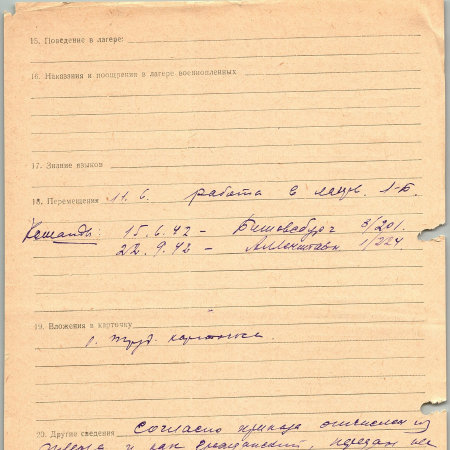 15. Поведение в лагере:
16. Наказания и поощрения в лагере военнопленных
17. Знание языков
18. Перемещения 11.6. работа в лагер. 1-Б.
Команды: 15.6.42 – Бишовсбург 3/201.
22.9.42 – Алленштайн 1/224
19. Вложения в карточку
1. Труд. карточка.
20. Другие сведения Согласно приказа отчислен из
и как гражданский, передан